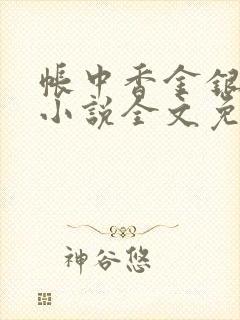 帐中香金银
小说全文免
神谷悠